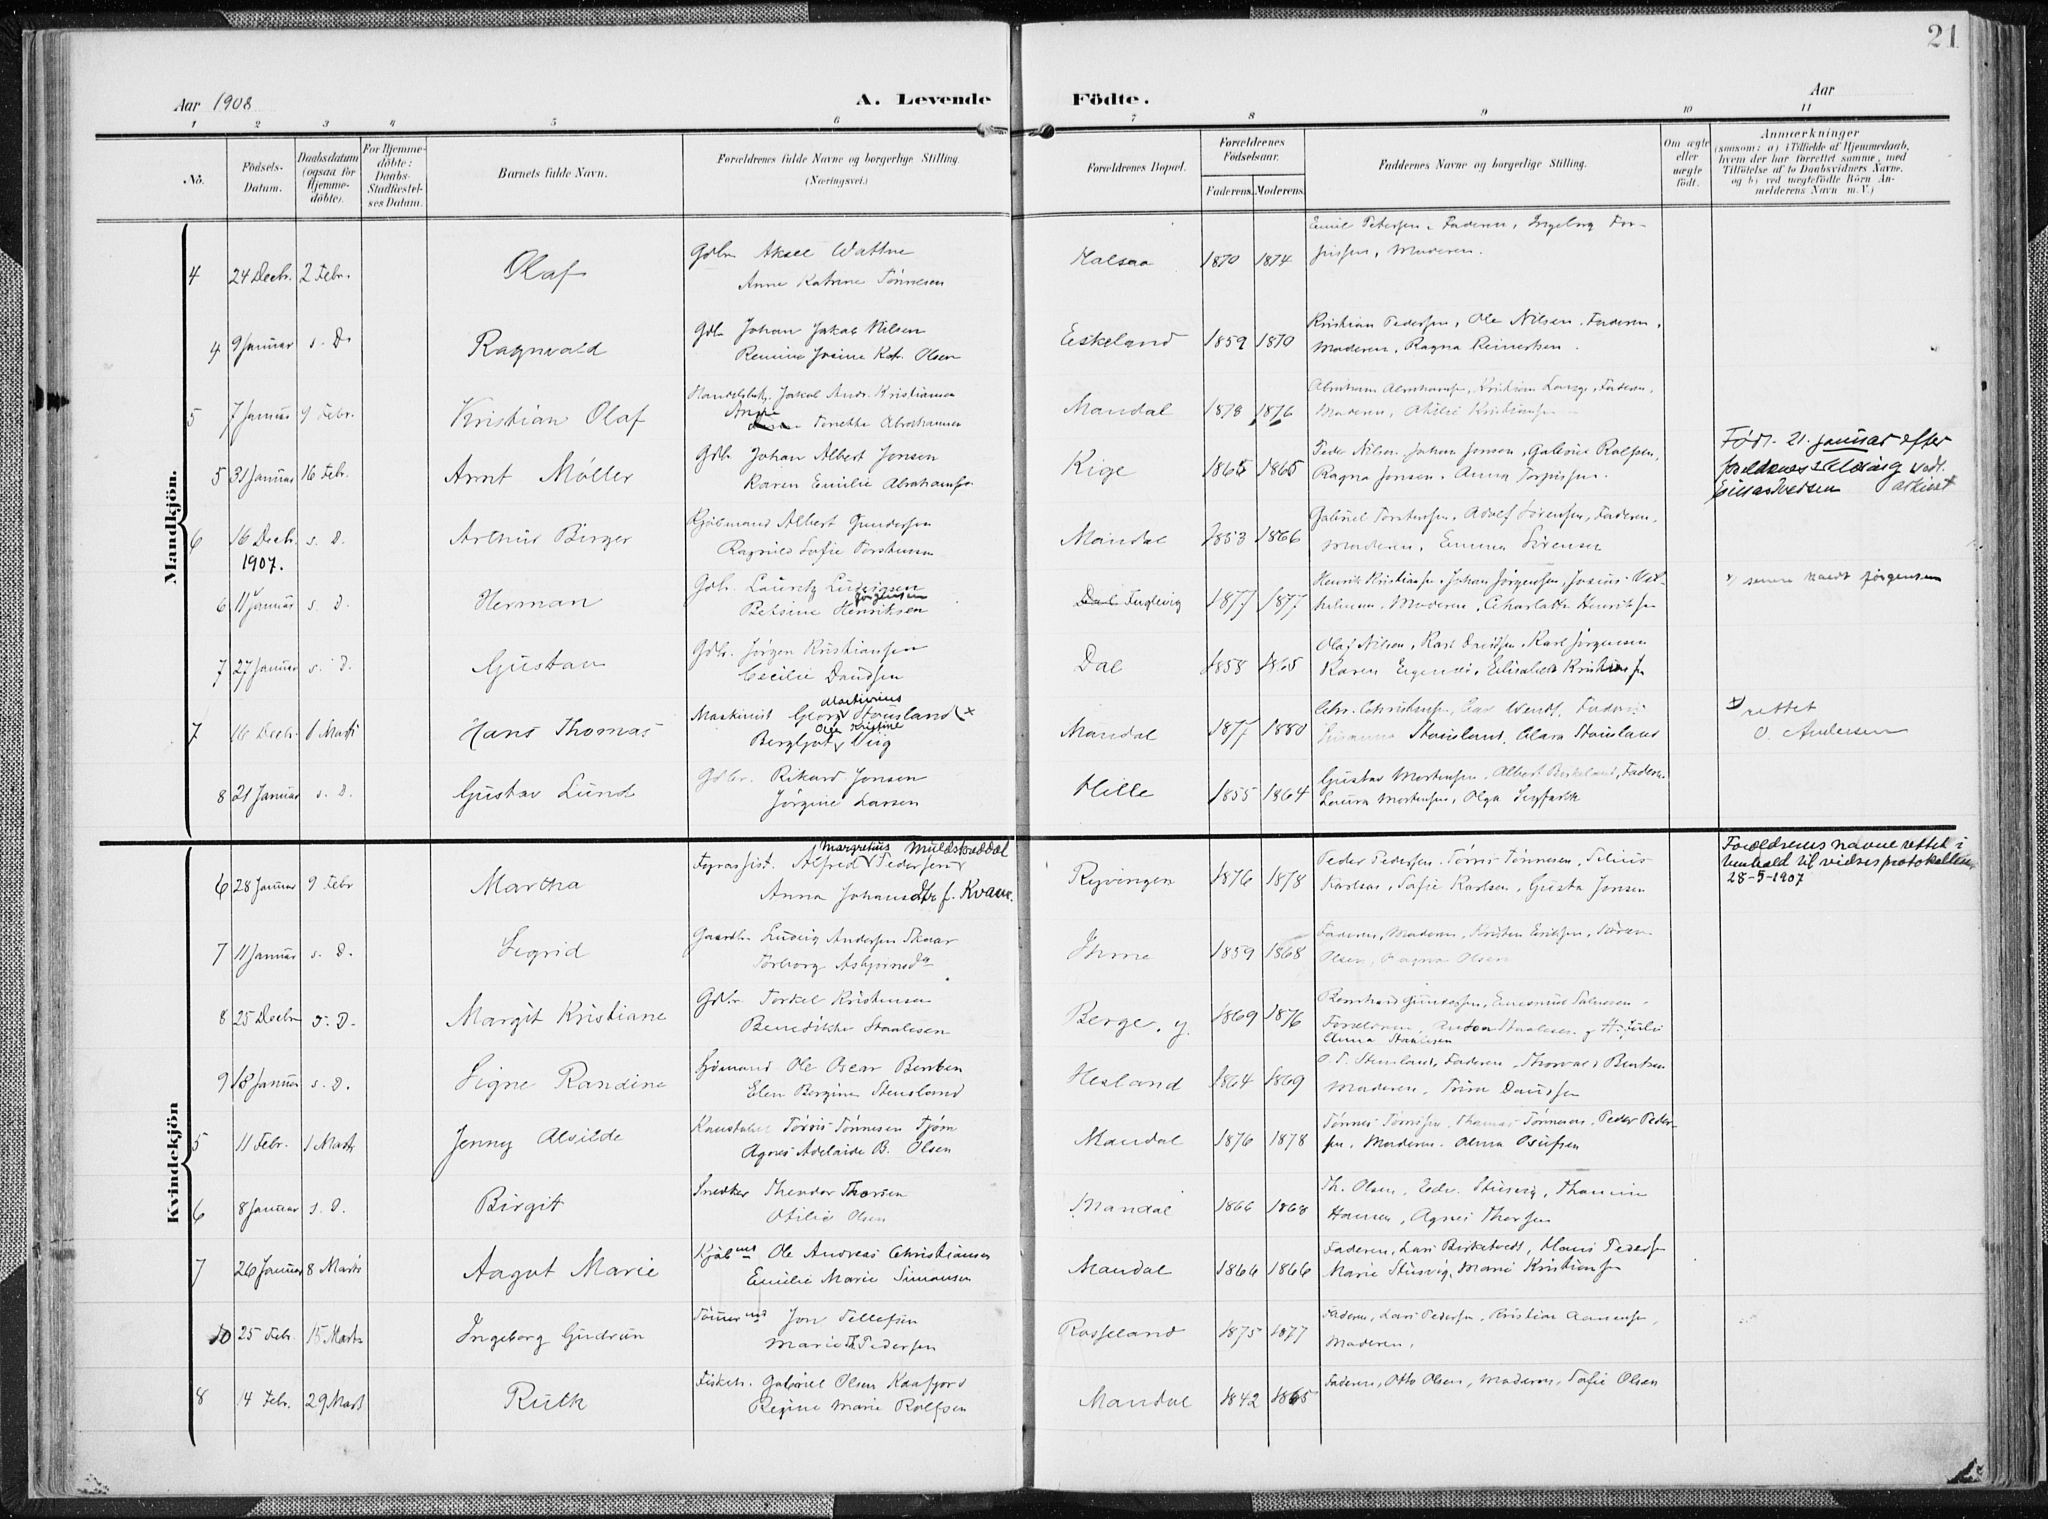 21
Aar 1908
A. Levende Födte.
Aar
1 2 3 4 5 6 7 8 9 10 11
No.
Födsels-Datum.
Daabsdatum (ogsaa for Hjemme-döbte).
For Hjemme-döbte: Daabs-Stadfæstel-ses Datum.
Barnets fulde Navn.
Forældrenes fulde Navne og borgerlige Stilling. (Næringsvei.)
Forældrenes Bopæl.
Forældrenes Födselsaar.
Faderens. Moderens.
Faddernes Navne og borgerlige Stilling.
Om ægte eller uægte födt.
Anmærkninger
(saasom: a) i Tilfælde af Hjemmedaab, hvem der har forrettet samme, med Tilföielse af to Daabsvidners Navne, og b) ved uægtefödte Börn An-melderens Navn m. V.)
Mandkjön.
4 24 Decb. 2 Febr. Olaf Gdbr. Aksel Wattne Halsaa 1870 1874 Emil Pedersen, Faderen, Ingeborg Tor-
Anne Katrine Tønnesen jussen, Moderen.
4 9 Januar s. D. Ragnvald Gdb. Johan Jakob Nilsen Eskeland 1859 1870 Kristian Pedersen, Ole Nilsen, Faderen,
Josine Kat. Olsen Moderen, Ragna Reinertsen.
5 7 Januar 9 Febr. Kristian Olaf Jakob Andr. Kristiansen Mandal 1878 1876 Abraham Abrahamsen, Kristian Faderen,
Anne Tonette Abrahamsen Moderen, Kristiansen
5 31 Januar 16 Febr. Arnt Møller Gdb. Johan Albert Jonsen Kige 1865 1865 Peder Nilsen, Johan Jonsen, Rolfsen,
Karen Emilie Abrahamsen Ragna Jonsen, Anna Torjussen.
Født 21. januar efter
6 16 Decb. 1907. s. D. Arthur Birger Albert Gundersen Mandal 1853 1866 Gabriel Torstensen, Adolf Sørensen, Faderen,
Ragnild Sofie Torstensen Moderen, Emma Sørensen
6 11 Januar s. D. Herman Gdb. Lauritz Ludvigsen Jørgensen Dal Fuglevig 1877 1877 Henrik Kristiansen, Johan Jørgensen,
Betsine Henriksen Moderen, Charlotte Henriksen
senere kaldt Jørgensen
7 27 Januar s. D. Gustav Gdb. Jørgen Kristiansen Dal 1858 1865 Olaf Nilsen, Karl Davidsen, Karl Jørgensen
Cecilie Davidsen Karen Elisabeth Kristiansen
7 16 Decb. 1 Marts Hans Thomas Maskinist Georg Martinius Stausland Mandal 1877 1880 Chr. Christensen, Faderen
Bergljot Olga Kristine Susanna Stausland, Clara Stausland
rettet
O. Andersen
8 21 Januar s. D. Gustav Lund Gdbr. Rikard Jonsen Hille 1855 1864 Gustav Mortensen, Albert Birkeland, Faderen
Jørgine Larsen Laura Mortensen, Olga
Kvindekjön
6 28 Januar 9 Febr Martha Fyrassist. Alfred Margretius Pedersen Muldskreddal Ryvingen 1876 1878 Peder Pedersen, Tønnesen,
Anna Johansdtr f. Kvavik. Karlsen, Sofie Karlsen, Gusta Jonsen
Forældrenes navne rettet i
henhold til vielsesprotokollen
28-5-1907
7 11 Januar s. D. Sigrid Ludvig Andersen Skaar Ihme 1859 1868 Faderen, Moderen, Kristen Eriksen,
Torborg Asbjørnsd. Olsen, Ragna Olsen
8 25 Decbr s. D. Margit Kristiane Gdbr. Torkel Kristensen Berge. y. 1869 1876 Bernhard Gundersen, Emanuel Salvesen,
Benedikte Staalesen Anna Staalesen
9 18 Januar s. D. Signe Randine Sjømand Ole Oscar Bentsen Hesland 1864 1869 O. T. Stensland, Faderen, Thorvald Bentsen
Elen Bergine Stensland Moderen, Davidsen
5 11 Febr. 1 Marts Jenny Alvilde Tønnesen Tjøm Mandal 1876 1878 Thomas Tønnesen, Peder Peder-
Agnes Adelaide B. Olsen sen, Moderen.
6 8 Januar s. D. Birgit Snedker Theodor Thorsen Mandal 1866 1868 Th. Olsen, Stusvig, Thomine
Otilie Olsen Hansen, Agnes Thorsen
7 26 Januar 8 Marts Aagot Marie Kjøbmd Ole Andreas Christiansen Mandal 1866 1866 Faderen, Lars Birketvedt, Hans Pedersen
Emilie Marie Simonsen Marie Stusvig, Marie Kristiansen
10 25 Febr. 15 Marts Ingeborg Gudrun Jon Tellefsen Rosseland 1875 1877 Faderen, Lars Pedersen, Kristian Aanensen,
Marie Th Pedersen Moderen.
8 14 Febr. 29 Marts Ruth Fisker. Gabriel Olsen Kaafjord Mandal 1842 1865 Faderen, Otto Olsen, Moderen, Sofie Olsen
Regine Marie Rolfsen